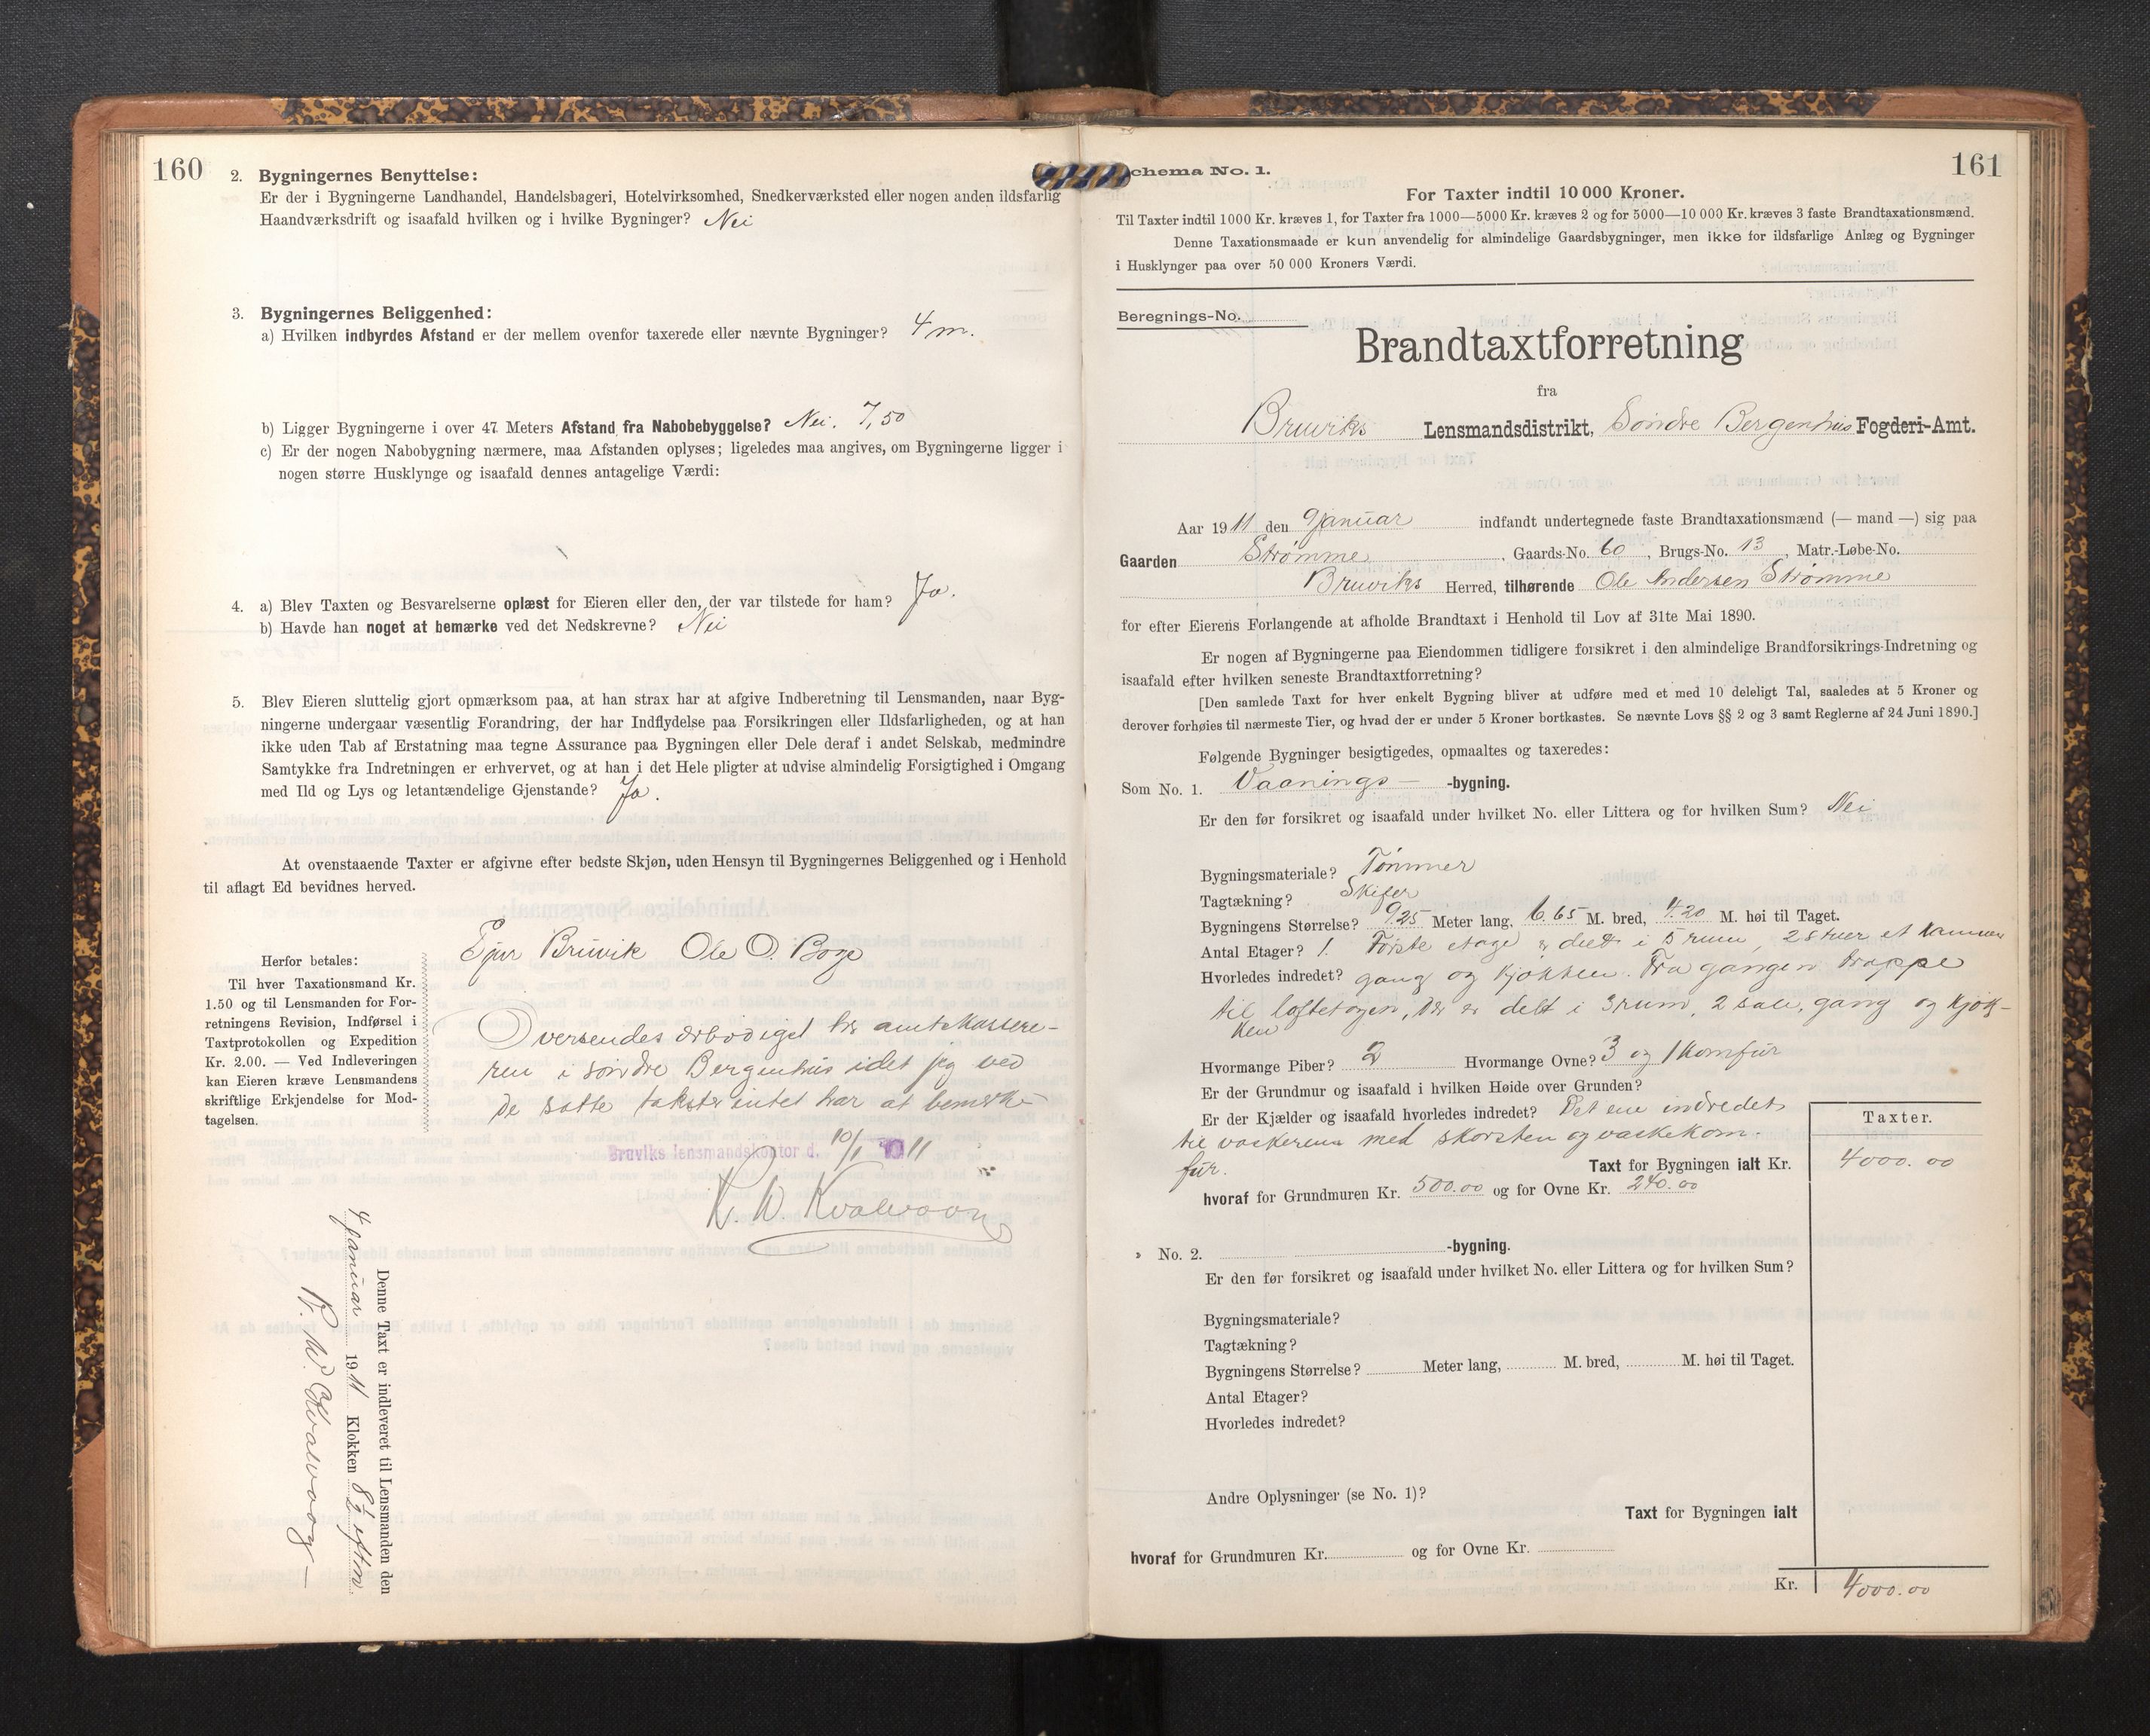 160
2. Bygningernes Benyttelse:
Er der i Bygningerne Landhandel, Handelsbageri, Hotelvirksomhed, Snedkerværksted eller nogen anden ildsfarlig
Haandværksdrift og isaafald hvilken og i hvilke Bygninger? Nei
3. Bygningernes Beliggenhed:
a) Hvilken indbyrdes Afstand er der mellem ovenfor taxerede eller nævnte Bygninger? 4 m.
b) Ligger Bygningerne i over 47 Meters Afstand fra Nabobebyggelse? Nei. 7,50
c) Er der nogen Nabobygning nærmere, maa Afstanden oplyses; ligeledes maa angives, om Bygningerne ligger i
nogen større Husklynge og isaafald dennes antagelige Værdi:
4. a) Blev Taxten og Besvarelserne oplæst for Eieren eller den, der var tilstede for ham? Ja.
b) Havde han noget at bemærke ved det Nedskrevne? Nei
5. Blev Eieren sluttelig gjort opmærksom paa, at han strax har at afgive Indberetning til Lensmanden, naar Byg-
ningerne undergaar væsentlig Forandring, der har Indflydelse paa Forsikringen eller Ildsfarligheden, og at han
ikke uden Tab af Erstatning maa tegne Assurance paa Bygningen eller Dele deraf i andet Selskab, medmindre
Samtykke fra Indretningen er erhvervet, og at han i det Hele pligter at udvise almindelig Forsigtighed i Omgang
med Ild og Lys og letantændelige Gjenstande? Ja.
At ovenstaaende Taxter er afgivne efter bedste Skjøn, uden Hensyn til Bygningernes Beliggenhed og i Henhold
til aflagt Ed bevidnes herved.
Bruvik Ole O. Boge
Herfor betales:
Til hver Taxationsmand Kr.
1.50 og til Lensmanden for For-
retningens Revision, Indførsel i
Taxtprotokollen og Expedition
Kr. 2.00. — Ved Indleveringen
kan Eieren kræve Lensmandens
skriftlige Erkjendelse for Mod-
tagelsen.
Oversendes ærbødigst hr amtskassere-
ren i søndre Bergenhus idet jeg ved
de satte takster intet har at bemerke
Bruviks lensmandskontor d. 10/1 1911
K. W. Kvalvaag
Denne Taxt er indleveret til Lensmanden den
4 Januar 1911 Klokken 8½ eftm.
K. W. Kvalvaag
161
Schema No. 1.
For Taxter indtil 10 000 Kroner.
Til Taxter indtil 1000 Kr. kræves 1, for Taxter fra 1000—5000 Kr. kræves 2 og for 5000—10 000 Kr. kræves 3 faste Brandtaxationsmænd.
Denne Taxationsmaade er kun anvendelig for almindelige Gaardsbygninger, men ikke for ildsfarlige Anlæg og Bygninger
i Husklynger paa over 50 000 Kroners Værdi.
Beregnings-No.
Brandtaxtforretning
fra
Bruviks Lensmandsdistrikt, Søndre Bergenhus Fogderi-Amt.
Aar 1911 den 9 Januar indfandt undertegnede faste Brandtaxationsmænd (— mand —) sig paa
Gaarden Strømme, Gaards-No. 60, Brugs-No. 13, Matr.-Løbe-No.
Bruviks Herred, tilhørende Ole Andersen Strømme
for efter Eierens Forlangende at afholde Brandtaxt i Henhold til Lov af 31te Mai 1890.
Er nogen af Bygningerne paa Eiendommen tidligere forsikret i den almindelige Brandforsikrings-Indretning og
isaafald efter hvilken seneste Brandtaxtforretning?
[Den samlede Taxt for hver enkelt Bygning bliver at udføre med et med 10 deleligt Tal, saaledes at 5 Kroner og
derover forhøies til nærmeste Tier, og hvad der er under 5 Kroner bortkastes. Se nævnte Lovs §§ 2 og 3 samt Reglerne af 24 Juni 1890.]
Følgende Bygninger besigtigedes, opmaaltes og taxeredes:
Som No. 1. Vaanings- -bygning.
Er den før forsikret og isaafald under hvilket No. eller Littera og for hvilken Sum? Nei
Bygningsmateriale? Tømmer
Tagtækning? Skifer
Bygningens Størrelse? 9.25 Meter lang, 6.65 M. bred, 4.20 M. høi til Taget.
Antal Etager? 1. Første etage er delt i 5 rum, 2 stuer et kammer
Hvorledes indredet? gang og kjøkken. Fra gangen trappe
til loftetagen, der er delt i 3 rum, 2 sale, gang og kjøk-
ken
Hvormange Piber? 2 Hvormange Ovne? 3 og 1 komfur
Er der Grundmur og isaafald i hvilken Høide over Grunden?
Er der Kjælder og isaafald hvorledes indredet? Det ene indredet
til vaskerum med skorsten og vaskekom-
fur.
Taxter.
Taxt for Bygningen ialt Kr. 4000.00
hvoraf for Grundmuren Kr. 500.00 og for Ovne Kr. 240.00
» No. 2. -bygning.
Er den før forsikret og isaafald under hvilket No. eller Littera og for hvilken Sum?
Bygningsmateriale?
Tagtækning?
Bygningens Størrelse? Meter lang, M. bred, M. høi til Taget.
Antal Etager?
Hvorledes indredet?
Andre Oplysninger (se No. 1)?
Taxt for Bygningen ialt
hvoraf for Grundmuren Kr. og for Ovne Kr.
Kr. 4000.00